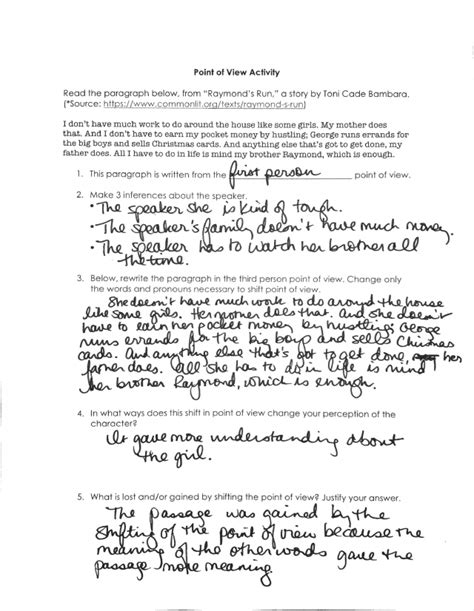 Point of View Activity
Read the paragraph below, from "Raymond's Run," a story by Toni Cade Bambara.
(*Source: https://www.commonlit.org/texts/raymond-s-run)
I don't have much work to do around the house like some girls. My mother does
that. And I don't have to earn my pocket money by hustling; George runs errands for
the big boys and sells Christmas cards. And anything else that's got to get done, my
father does. All I have to do in life is mind my brother Raymond, which is enough.
1. This paragraph is written from the first person point of view.
2. Make 3 inferences about the speaker.
• The speaker she is kind of tough.
• The speaker's family doesn't have much money.
• The speaker has to watch her brother all
the time.
3. Below, rewrite the paragraph in the third person point of view. Change only
the words and pronouns necessary to shift point of view.
She doesn't have much work to do around the house
like some girls. Her mother does that. And she doesn't
have to earn her pocket money by hustling; George
runs errands for the big boys and sells Christmas
cards. And anything else that's got to get done, her
father does. All she has to do in life is mind
her brother Raymond, which is enough.
4. In what ways does this shift in point of view change your perception of the
character?
It gave more understanding about
the girl.
5. What is lost and/or gained by shifting the point of view? Justify your answer.
The passage was gained by the
shifting of the point of view because the
meaning of the other words gave the
passage more meaning.